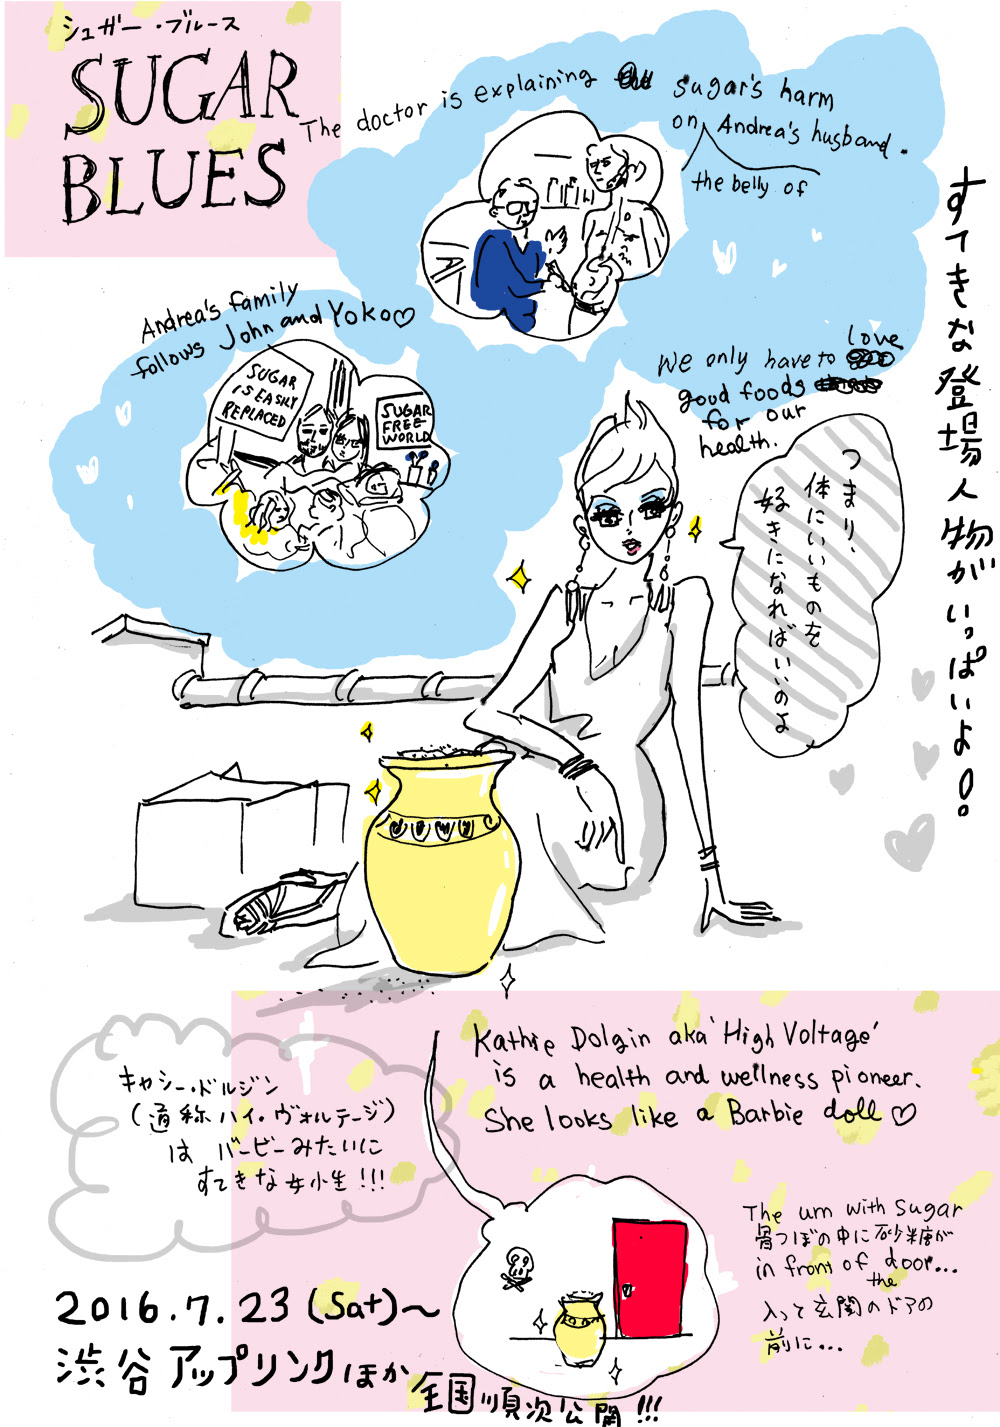 シュガー・ブルース
SUGAR
BLUES
The doctor is explaining sugar's harm
on Andrea's husband.
the belly of
Andrea's family
follows John and Yoko♡
SUGAR
IS EASILY
REPLACED
SUGAR
FREE
WORLD
We only have to love
good foods
for our
health.
つまり、
体にいいものを
好きになればいいのよ
すてきな登場人物がいっぱいよ!
Kathie Dolgin aka 'High Voltage'
is a health and wellness pioneer.
She looks like a Barbie doll♡
キャシー・ドルジン
(道称ハイ・ヴォルテージ)
は バービーみたいに
すてきな女性!!!
The urn with sugar
骨つぼの中に砂糖が
in front of the door...
入って玄関のドアの
前に...
2016.7.23(Sat)～
渋谷アップリンクほか
全国順次公開!!!